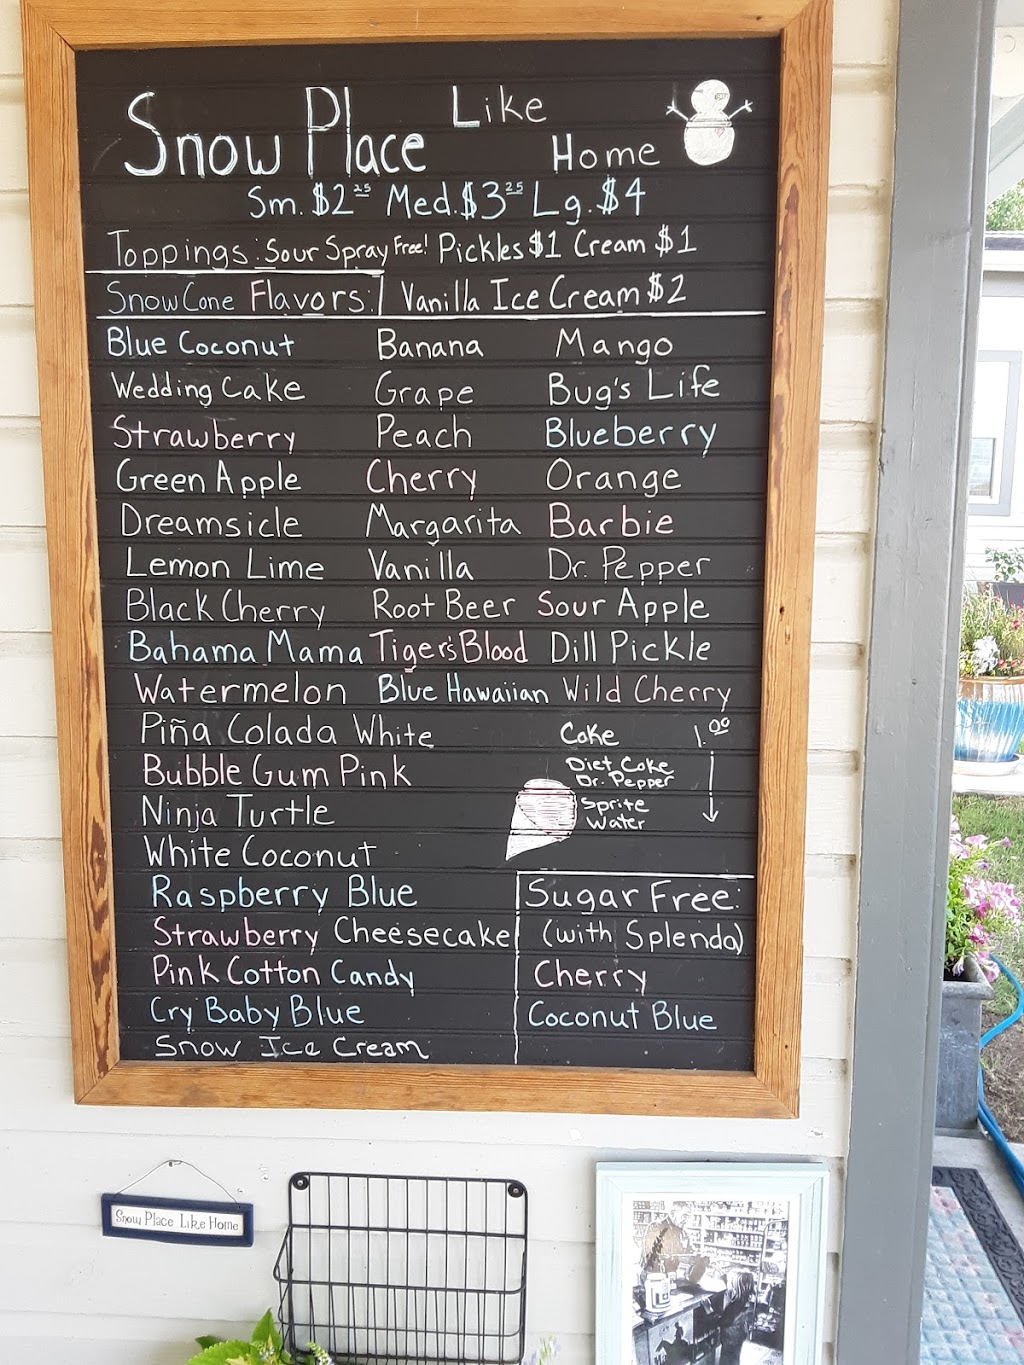 Snow Place Like Home
Sm. $2.25 Med. $3.25 Lg. $4
Toppings: Sour Spray Free! Pickles $1 Cream $1
Snow Cone Flavors: Vanilla Ice Cream $2
Blue Coconut Banana Mango
Wedding Cake Grape Bug's Life
Strawberry Peach Blueberry
Green Apple Cherry Orange
Dreamsicle Margarita Barbie
Lemon Lime Vanilla Dr. Pepper
Black Cherry Root Beer Sour Apple
Bahama Mama Tiger's Blood Dill Pickle
Watermelon Blue Hawaiian Wild Cherry
Piña Colada White
Bubble Gum Pink
Ninja Turtle
White Coconut
Raspberry Blue
Strawberry Cheesecake
Pink Cotton Candy
Cry Baby Blue
Snow Ice Cream
Coke 1.00
Diet Coke
Dr. Pepper
Sprite
Water
Sugar Free:
(with Splenda)
Cherry
Coconut Blue
Snow Place Like Home